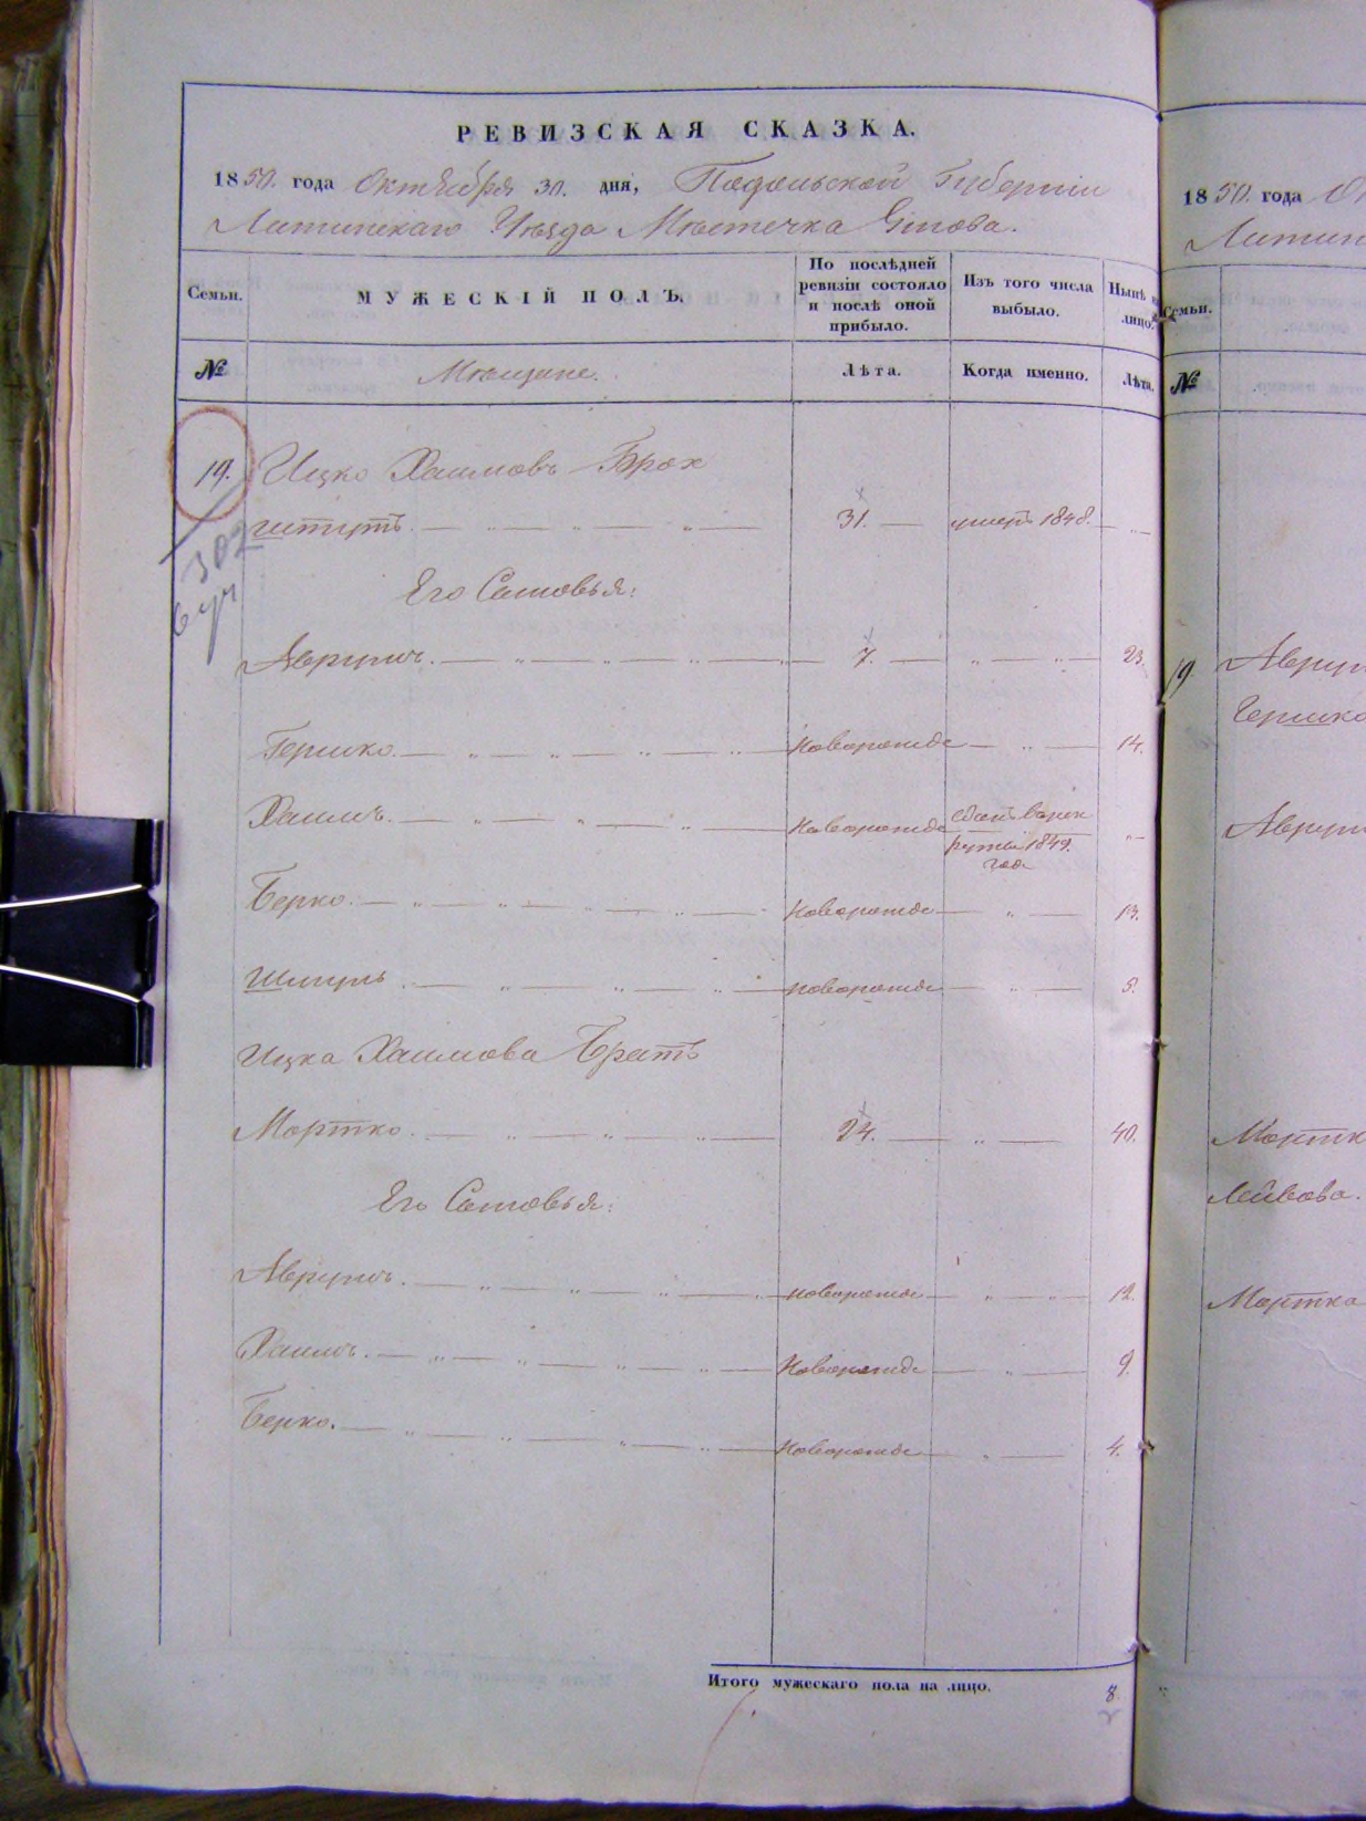 РЕВИЗСКАЯ СКАЗКА.
1850. года Октября 30. дня, Подольской Губернiи
Литинскаго Уѣзда Мѣстечка
Семьи.
МУЖЕСКIЙ ПОЛЪ.
По послѣдней ревизiи состояло и послѣ оной прибыло.
Изъ того числа выбыло.
Нынѣ на лицо.
№
Мѣщане.
Лѣта.
Когда именно.
Лѣта.
19. Ицко Хаимовъ
31. умеръ 1848.
302
Его Сыновья:
Аврумъ. 7. 23.
Гершко. новорожде 14.
Хаимъ. новорожде 1849. года
Берко. новорожде 13.
Шмуль новорожде 5.
Ицка Хаимова Братъ
Мортко. 24. 40.
Его Сыновья:
Аврумъ. новорожде 12.
Хаимъ. новорожде 9.
Берко. новорожде 4.
Итого мужескаго пола на лицо. 8.
1850. года
Литин
Семьи.
№
19. Аврум
Гершко
Аврум
Мортк
Лейбова.
Мортка